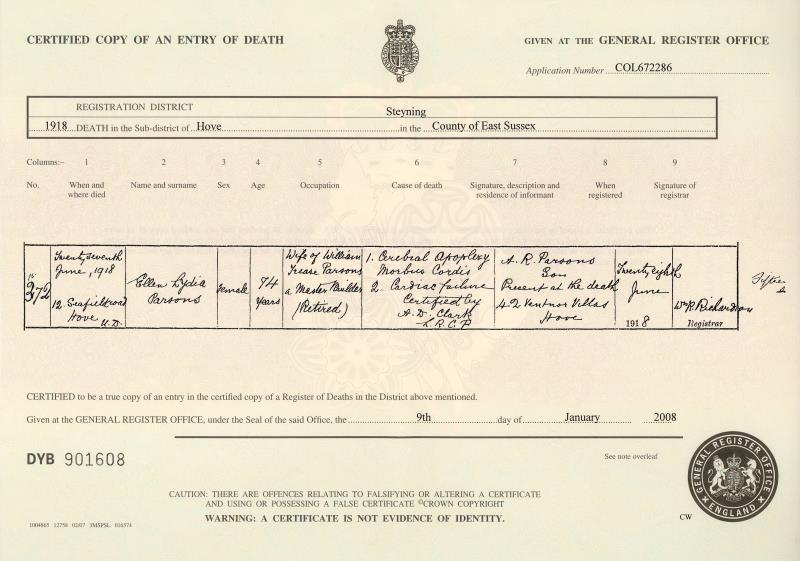 CERTIFIED COPY OF AN ENTRY OF DEATH
GIVEN AT THE GENERAL REGISTER OFFICE
Application Number COL672286
REGISTRATION DISTRICT
Steyning
1918 DEATH in the Sub-district of Hove in the County of East Sussex
Columns:- 1 2 3 4 5 6 7 8 9
No. When and where died Name and surname Sex Age Occupation Cause of death Signature, description and residence of informant When registered Signature of registrar
372
Twenty seventh
June, 1918
12. Seafield road
Hove U.D.
Ellen Lydia
Parsons
Female
74
years
Wife of William
Trease Parsons
a Master Builder
(Retired)
1. Cerebral Apoplexy
Morbus Cordis
2. Cardiac failure
Certified by
A. D. Clark
L.R.C.P
A. R. Parsons
Son
Present at the death
42 Ventnor Villas
Hove
Twenty eighth
June
1918
Wm R. Richardson
Registrar
CERTIFIED to be a true copy of an entry in the certified copy of a Register of Deaths in the District above mentioned.
Given at the GENERAL REGISTER OFFICE, under the Seal of the said Office, the 9th day of January 2008
DYB 901608
See note overleaf
CAUTION: THERE ARE OFFENCES RELATING TO FALSIFYING OR ALTERING A CERTIFICATE
AND USING OR POSSESSING A FALSE CERTIFICATE ©CROWN COPYRIGHT
WARNING: A CERTIFICATE IS NOT EVIDENCE OF IDENTITY.
GENERAL REGISTER OFFICE
ENGLAND
CW
1004865 12758 02/07 3MSPSL 016574